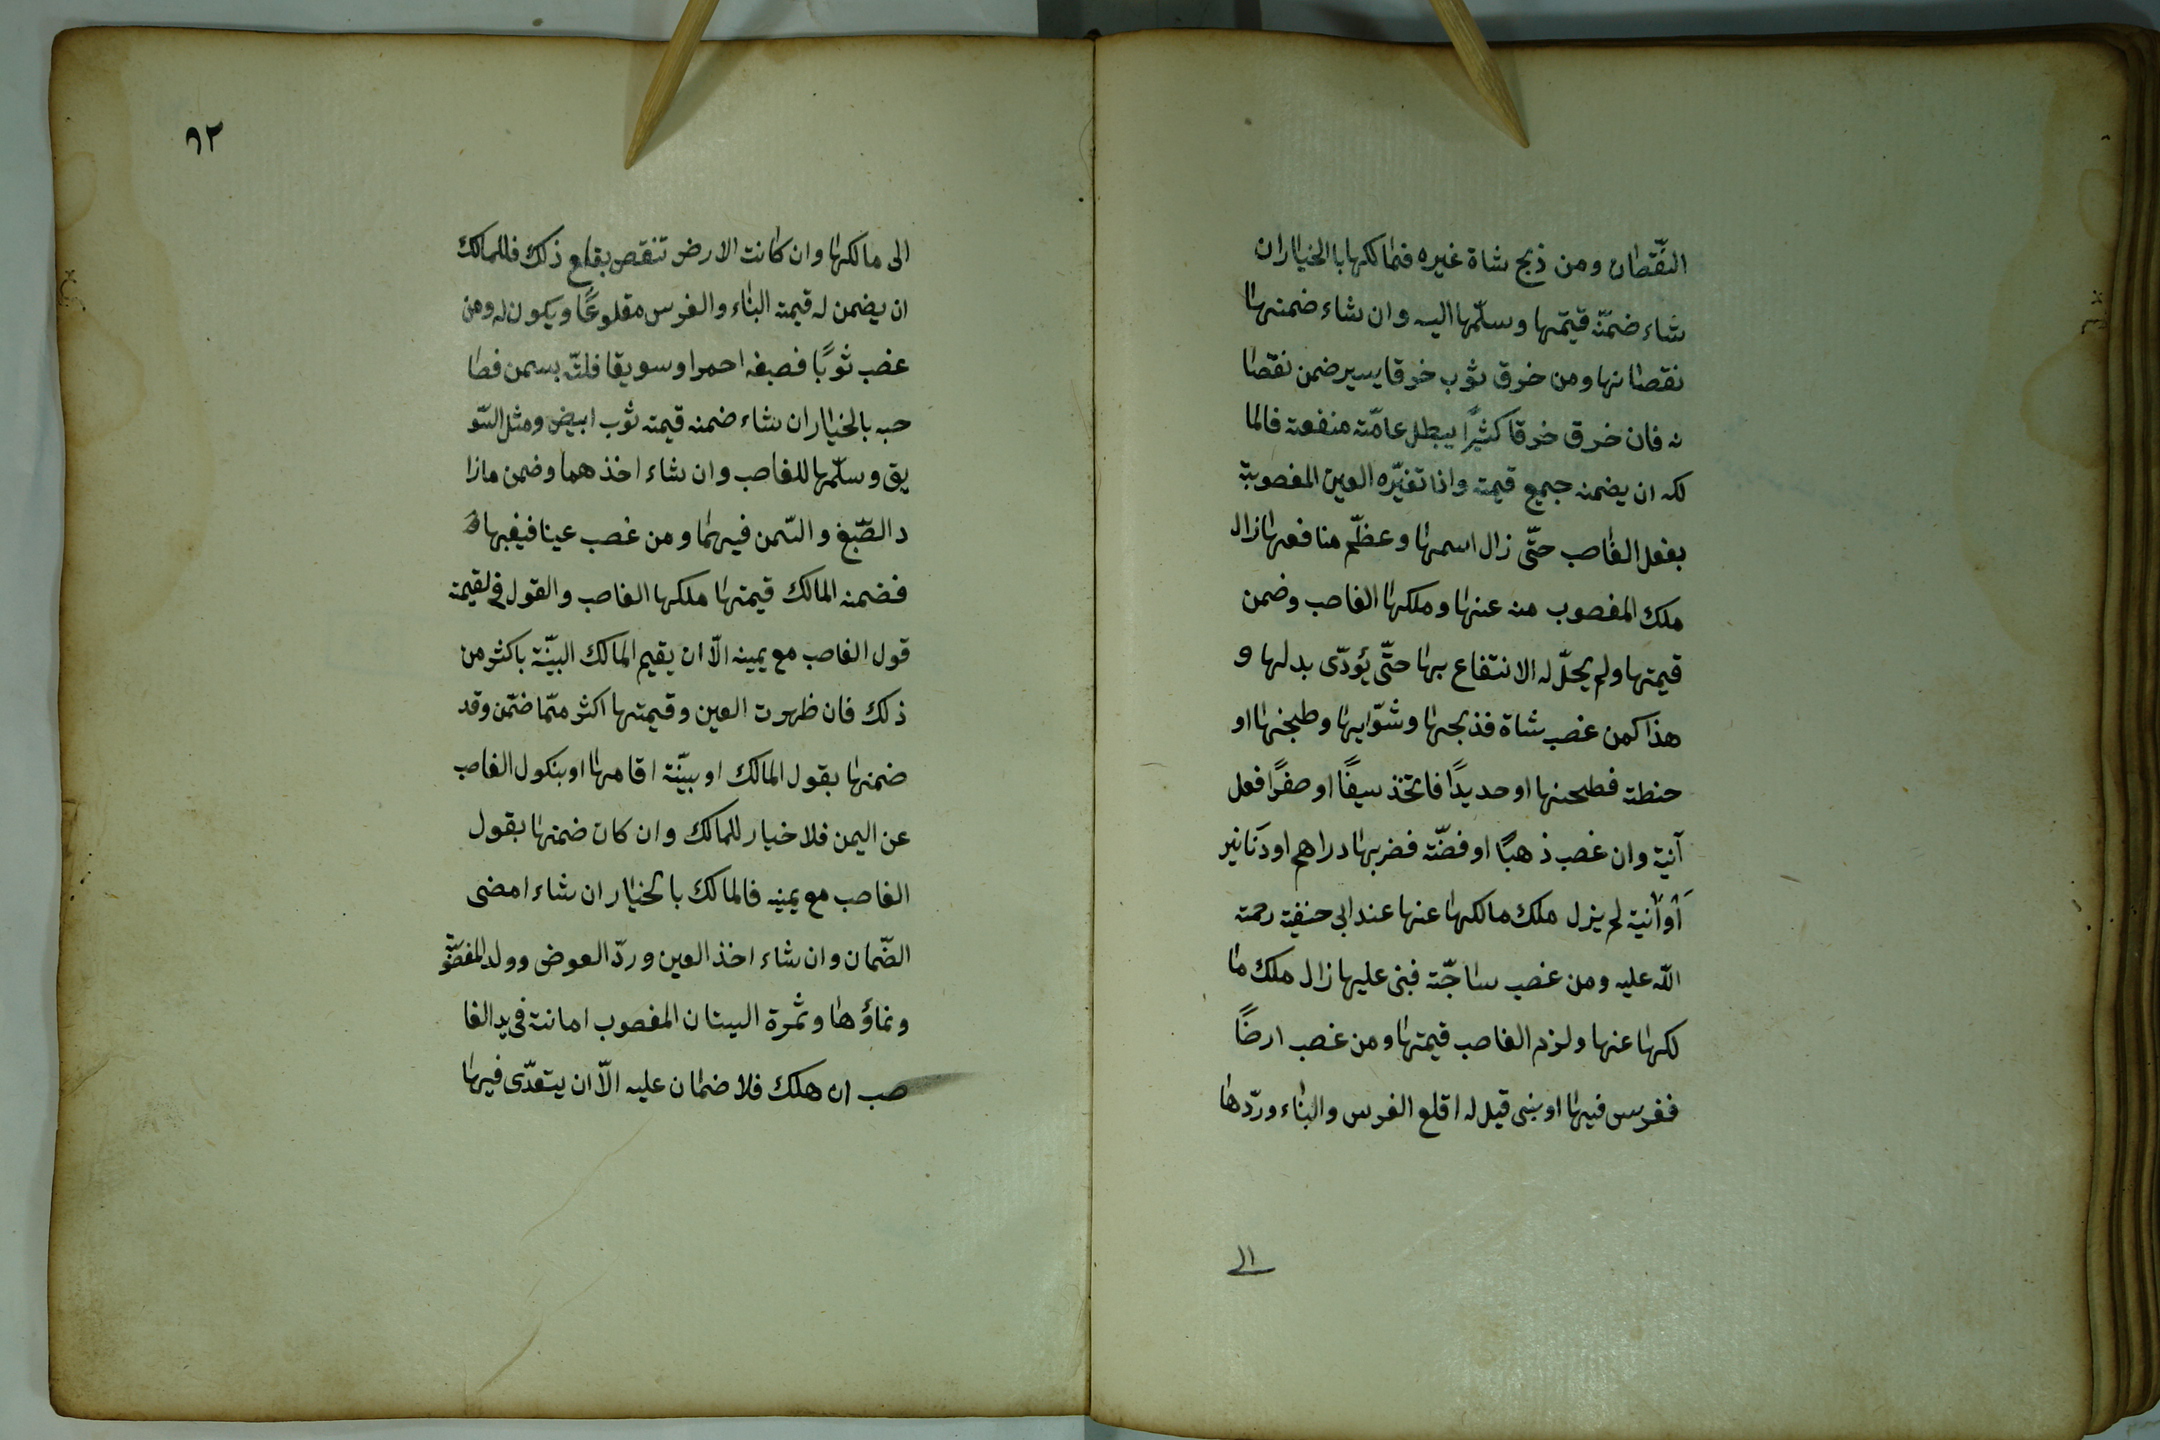 النّقصان ومن ذبح شاة غيره فمالكها بالخيار ان
شاء ضمّنه قيمتها وسلّمها اليه وان شاء ضمنها
نقصانها ومن خرق ثوب خرقا يسير ضمن نقصا
نه فان خرق خرقا كثيرًا يبطل عامّته منفعته فالما
لكه ان يضمنه جميع قيمته واذا تغيّره العين المغصوبة
بفعل الغاصب حتّى زال اسمها وعظّم منافعها زال
ملك المغصوب منه عنها وملكها الغاصب وضمن
قيمتها ولم يحلّ له الانتفاع بها حتّى يؤدّى بدلها و
هذا كمن غصب شاة فذبحها وشوّايها وطبخها او
حنطة فطحنها او حديدًا فاتخذ سيفًا او صفرًا فعل
آنية وان غصب ذهبًا او فضّة فضربها دراهم او دنانير
أو أنية لم يزل ملك مالكها عنها عند ابى حنيفة رحمة
اللّه عليه ومن غصب ساجّة فبنى عليها زال ملك ما
لكها عنها ولزم الغاصب قيمتها ومن غصب ارضًا
فغرس فيها او بنى قيل له اقلع الغرس والبناء وردّها
الى
٩٢
الى مالكها وان كانت الارض تنقص بقلع ذلك فللمالك
ان يضمن له قيمة البناء والغرس مقلوعًا ويكون له ومن
غصب ثوبًا فصبغه احمر او سويقا فلتّه بسمن فصا
حبه بالخيار ان شاء ضمنه قيمته ثوب ابيض ومثل السّو
يق وسلّمها للغاصب وان شاء اخذ هما وضمن مازا
د الصّبغ والسّمن فيهما ومن غصب عينا فيغبها
فضمنه المالك قيمتها ملكها الغاصب والقول فى لقيمة
قول الغاصب مع يمينه الّا ان يقيم المالك البيّنة باكثر من
ذلك فان ظهرت العين وقيمتها اكثر ممّا ضمّن وقد
ضمنها بقول المالك او ببيّنة اقامها او بنكول الغاصب
عن اليمن فلا خيار للمالك وان كان ضمنها بقول
الغاصب مع يمينه فالمالك بالخيار ان شاء امضى
الضّمان وان شاء اخذ العين وردّ العوض وولد المغصوبة
ونماؤها وثمرة البستان المغصوب امانة فى يد الغا
صب ان هلك فلا ضمان عليه الّا ان يتعدّى فيها